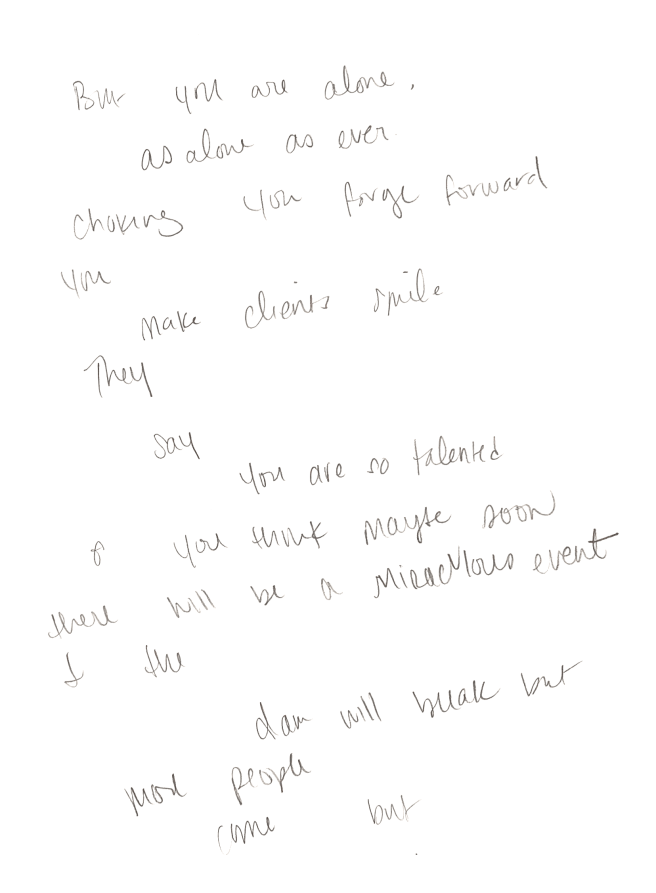 But you are alone,
as alone as ever.
choking you forge forward
you
make clients smile
They
say
you are so talented
& you think maybe soon
there will be a miraculous event
& the
dam will break but
more people
come but